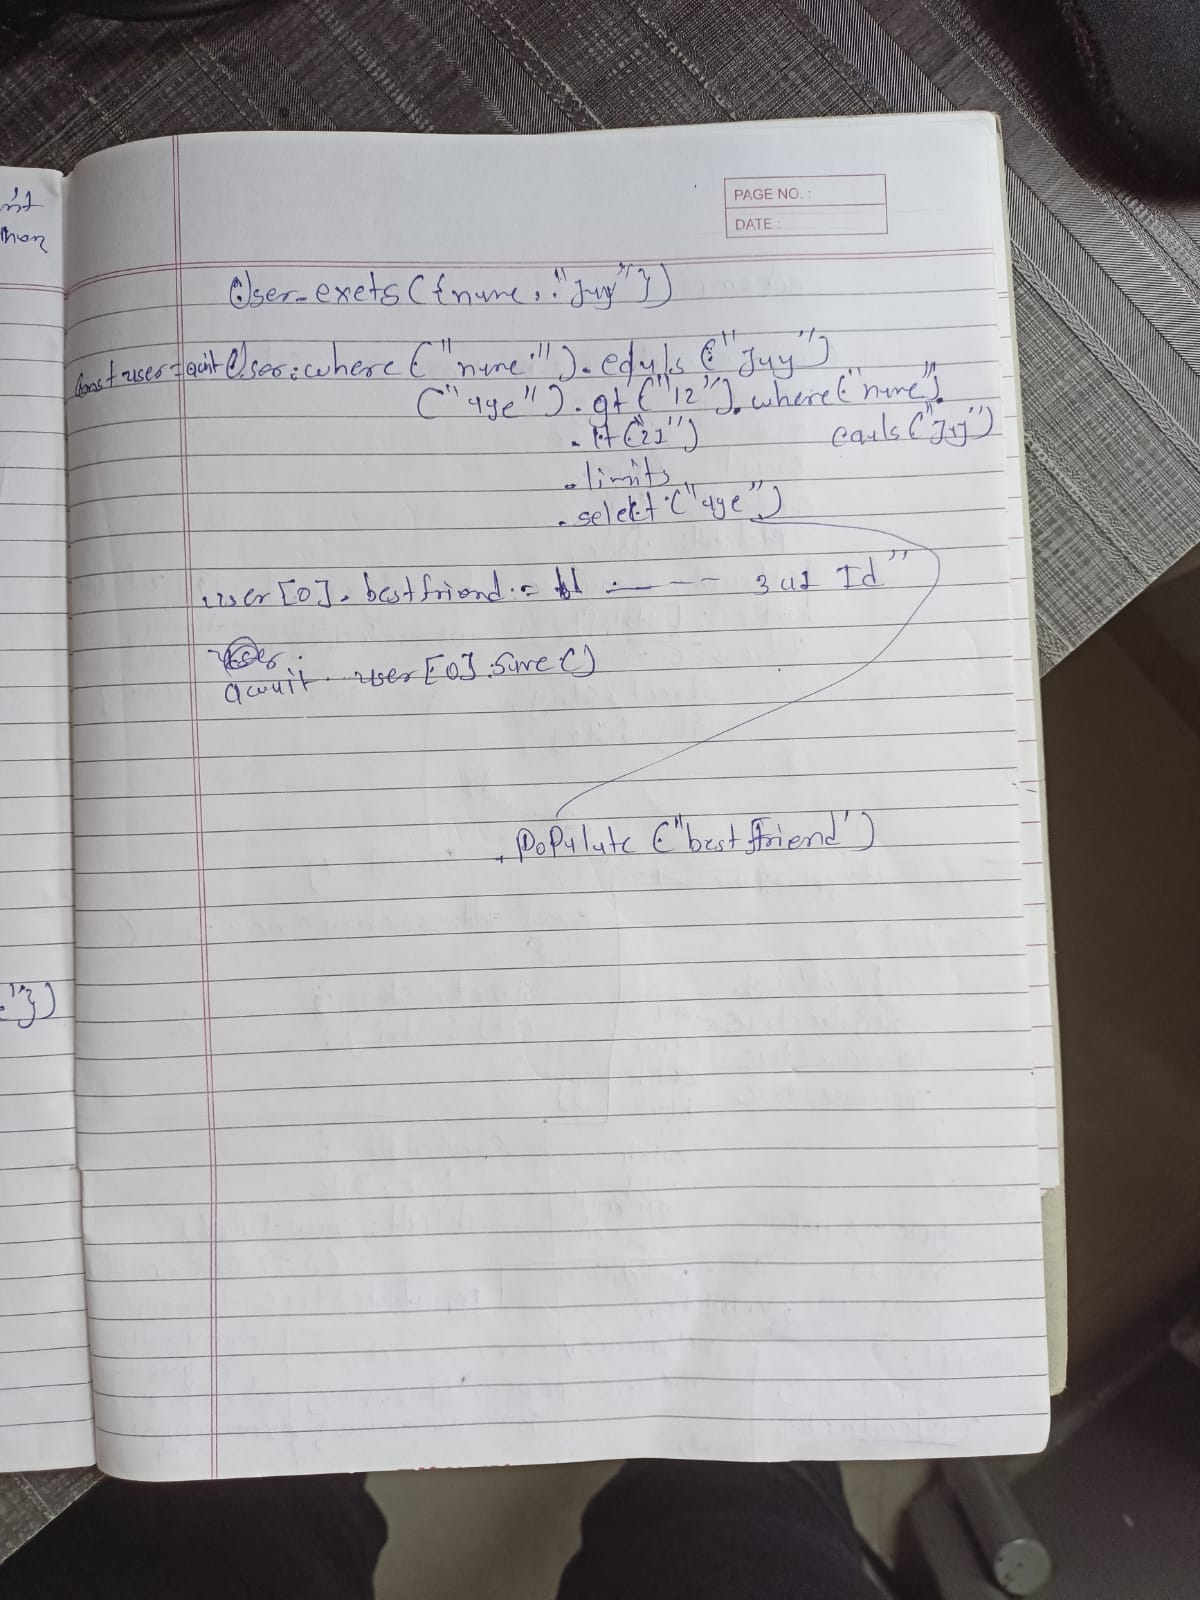 ist
then
PAGE NO. :
DATE :
User.exets({name : "Jay"})
const user = await User.where("name").eduls("Jay")
("age").gt("12").where("name").
.lt("21") eauls("Jay")
.limits
.select("age")
user[0].bestfriend = ---- 3 a1 Id"
await user[0].save()
.Populate("best friend')
"})